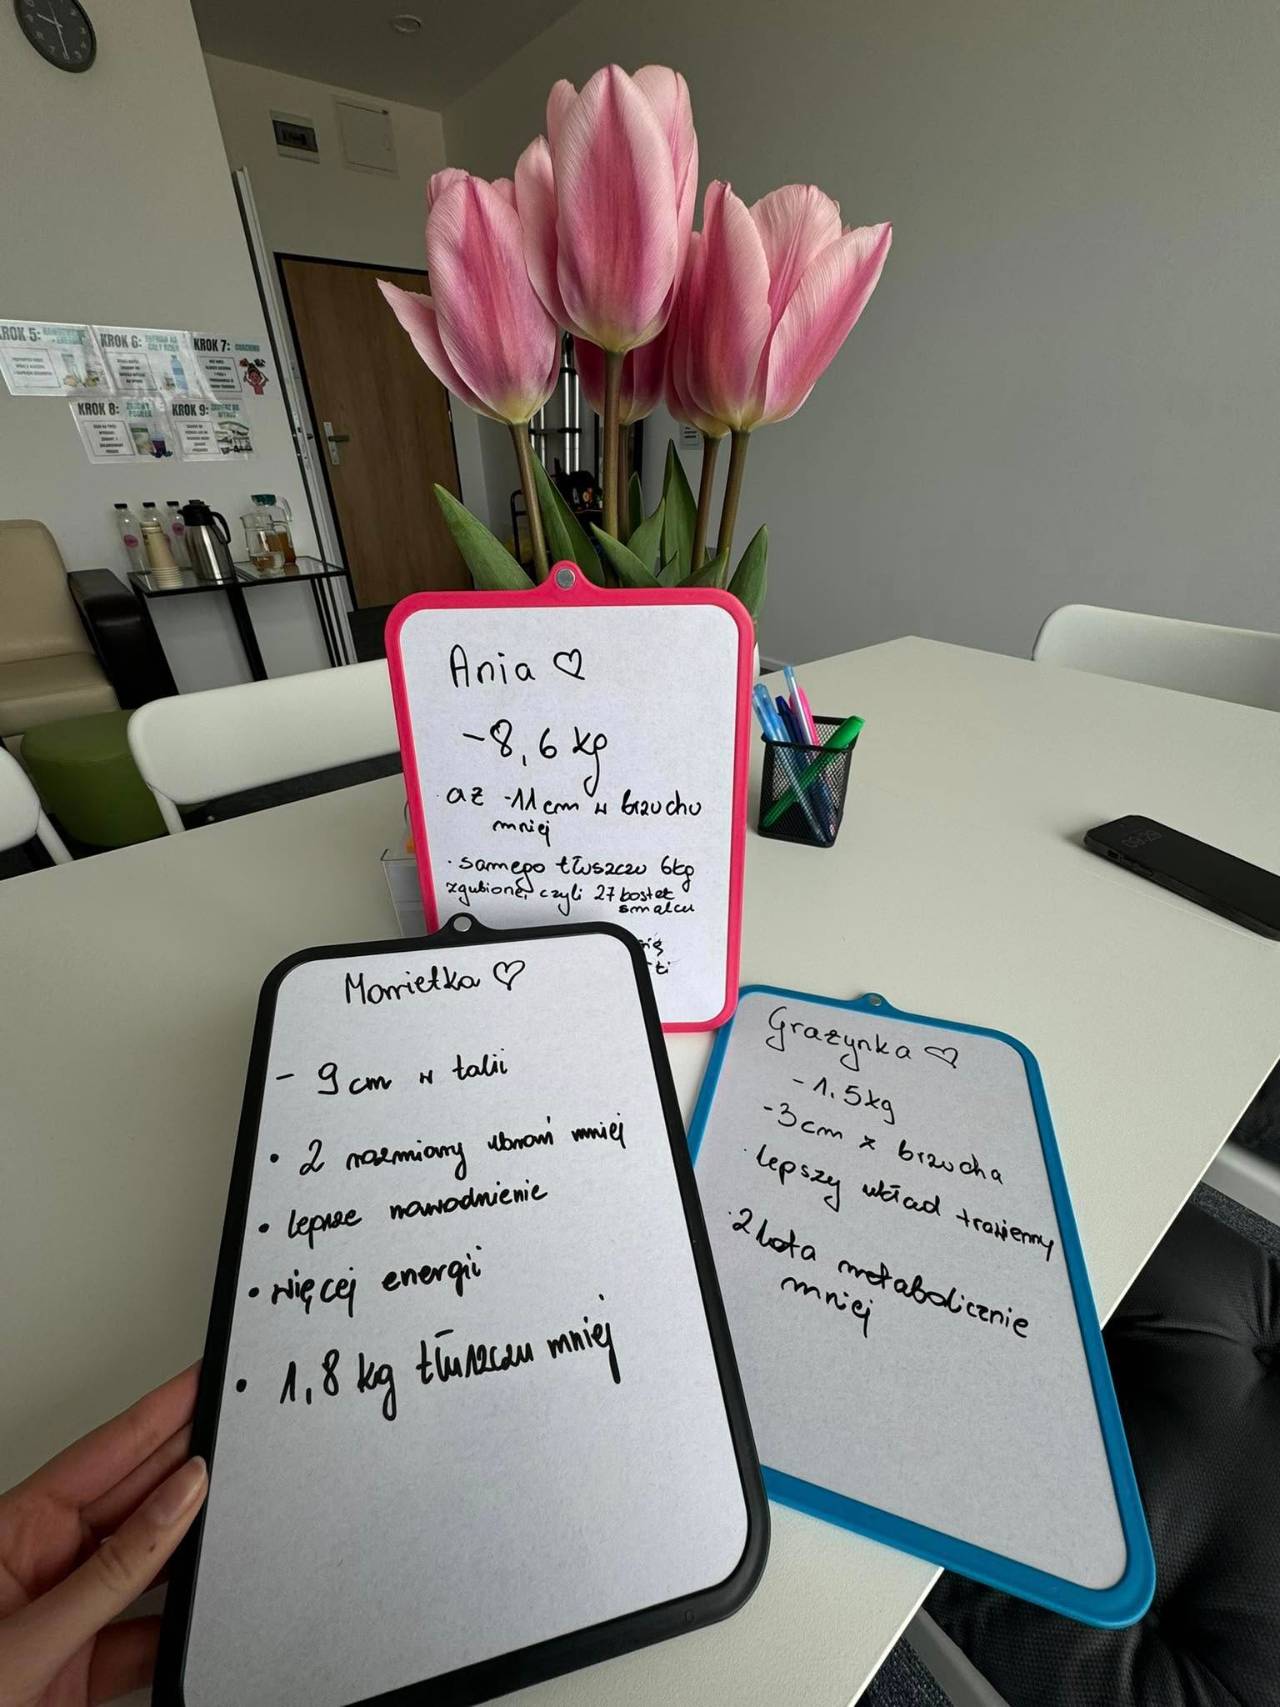 KROK 5:
KROK 6:
KROK 7:
KROK 8:
KROK 9:
Ania ♡
-8,6 kg
· aż -11cm w brzuchu
mniej
· samego tłuszczu 6kg
zgubione, czyli 27 kostek
smalcu
się
Marietka ♡
- 9cm w talii
• 2 rozmiary ubrań mniej
• lepsze nawodnienie
• więcej energii
• 1,8 kg tłuszczu mniej
Grażynka ♡
-1.5kg
-3cm z brzucha
· lepszy układ trawienny
· 2 lata metabolicznie
mniej